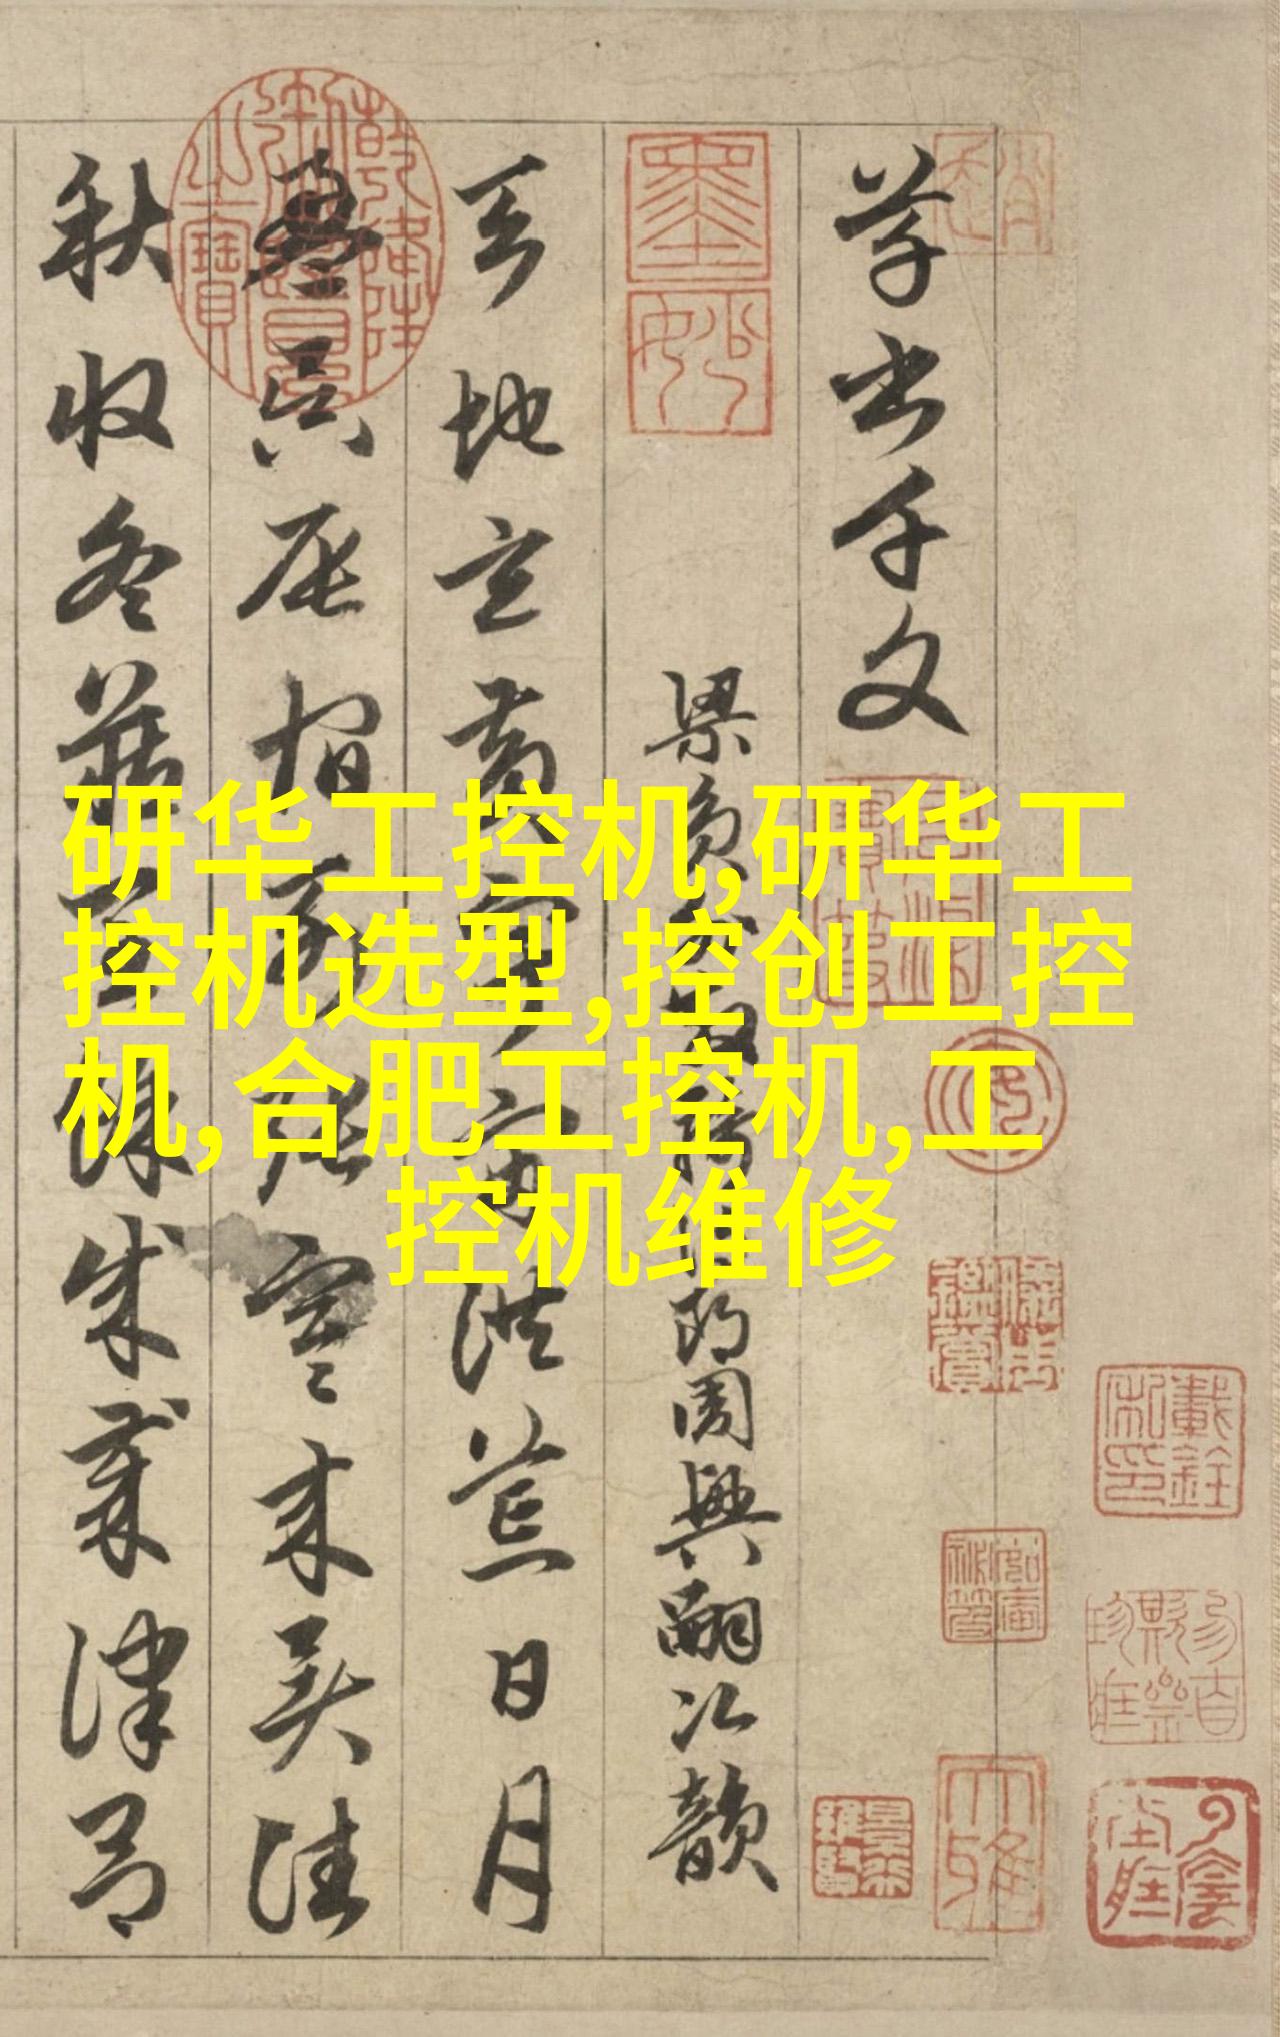 研华工控机,研华工
控机选型,控创工控
机,合肥工控机,工
控机维修
草书千文
梁员外散骑侍郎周興嗣次韻
天地玄黄宇宙洪荒日月
盈昃辰宿列张寒来暑往
秋收冬藏闰馀成歲律吕
墨妙
乾隆御覽之寶
大雅